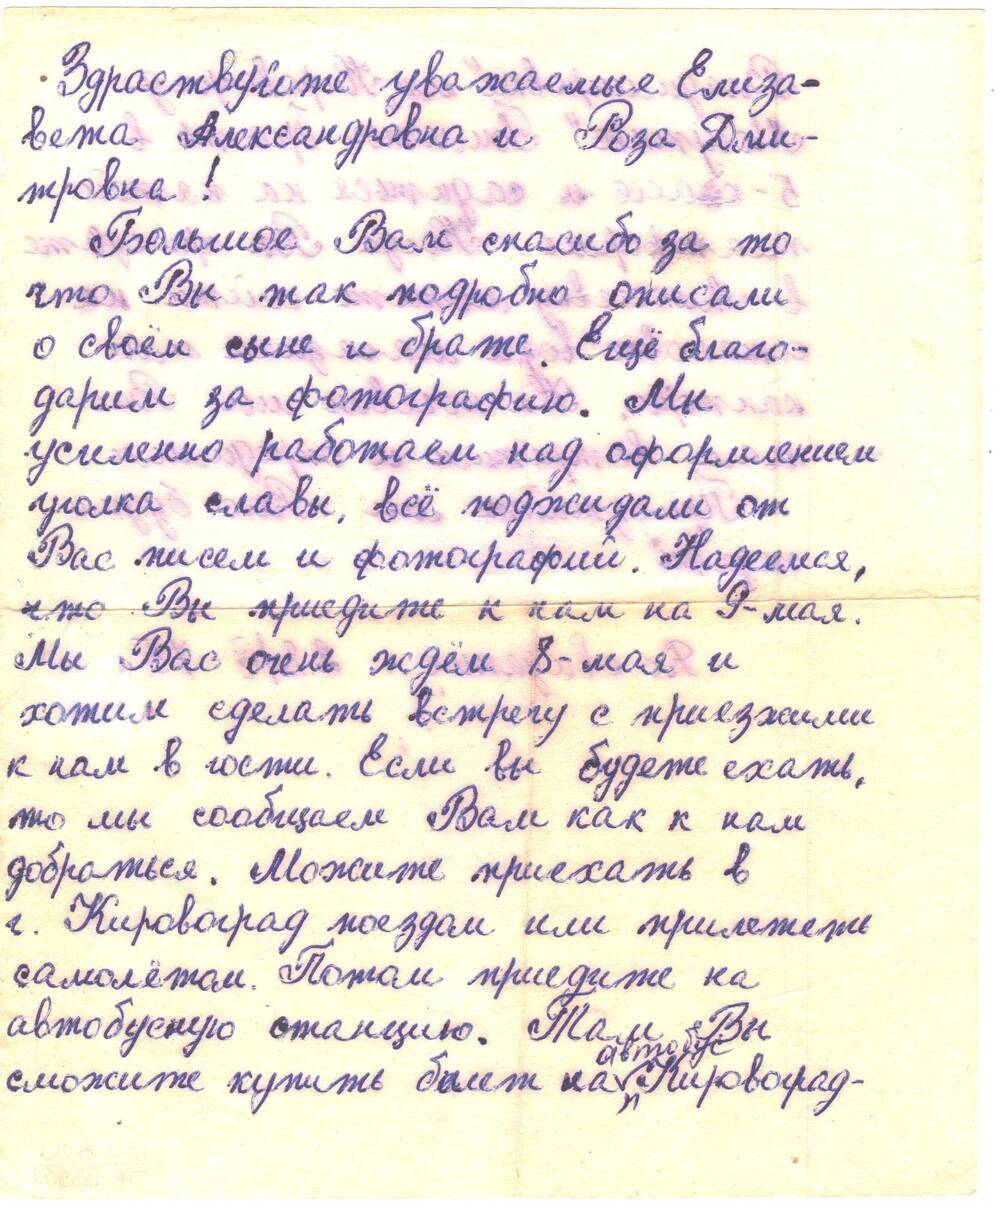 Здраствуйте уважаемые Елиза-
вета Александровна и Роза Дми-
тровна!
Большое Вам спасибо за то
что Вы так подробно описали
о своём сыне и брате. Ещё благо-
дарим за фотографию. Мы
усиленно работаем над оформлением
уголка славы, всё поджидали от
Вас писем и фотографий. Надеемся,
что Вы приедите к нам на 9-мая.
Мы Вас очень ждём 8-мая и
хотим сделать встречу с приезжими
к нам в гости. Если вы будете ехать,
то мы сообщаем Вам как к нам
добраться. Можите приехать в
г. Кировоград поездом или прилететь
самолётом. Потом приедите на
автобусную станцию. Там Вы
сможите купить билет на автобус Кировоград-